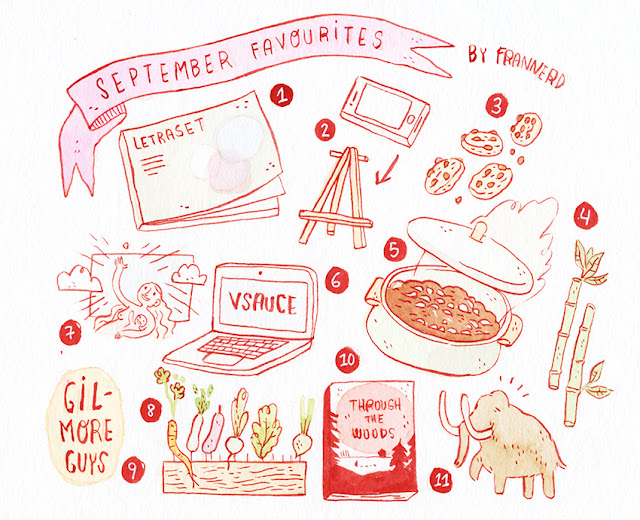 SEPTEMBER FAVOURITES
BY FRANNERD
1
LETRASET
2
3
4
5
6
VSAUCE
7
8
GIL-
MORE
GUYS
9
10
THROUGH
THE
WOODS
11